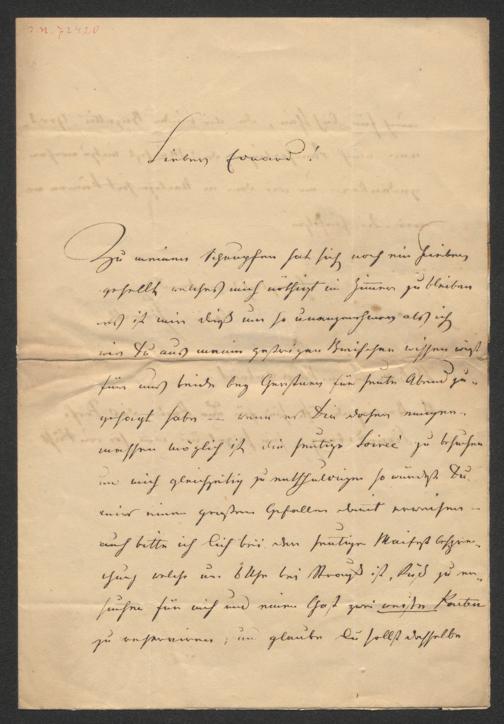 I.N. 72420
Lieber Eduard!
Zu meinem Schnupfen hat sich noch ein Fieber
gesellt welches mich nöthigt im Zimmer zu bleiben
es ist mir dieß um so unangenehmer als ich
wie Du aus meinem gestrigen Briefchen wissen wirst
für uns beide bey Gerstner für heute Abend zu-
gesagt habe — wenn es Dir daher einiger-
massen möglich ist die heutige Soireé zu besuchen
um mich gleichzeitig zu entschuldigen so würdest Du
mir einen großen Gefallen damit erweisen —
auch bitte ich Dich bei der heutigen Maifest bespre-
chung welche um 8 Uhr bei Strauß ist, zu er-
suchen für mich und einen Gast zwei weiße Karten
zu reserviren, ich glaube Du sollst dasselbe